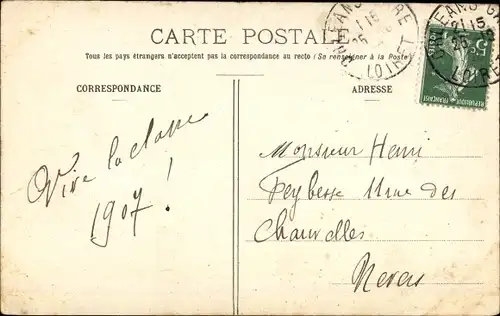 CARTE POSTALE
Tous les pays étrangers n'acceptent pas la correspondance au recto (Se renseigner à la Poste)
CORRESPONDANCE
ADRESSE
Vive la classe
1907 !
Monsieur Henri
11 rue des
Chauvelles
Nevers
ORLEANS GARE
LOIRET
5
REPUBLIQUE FRANÇAISE